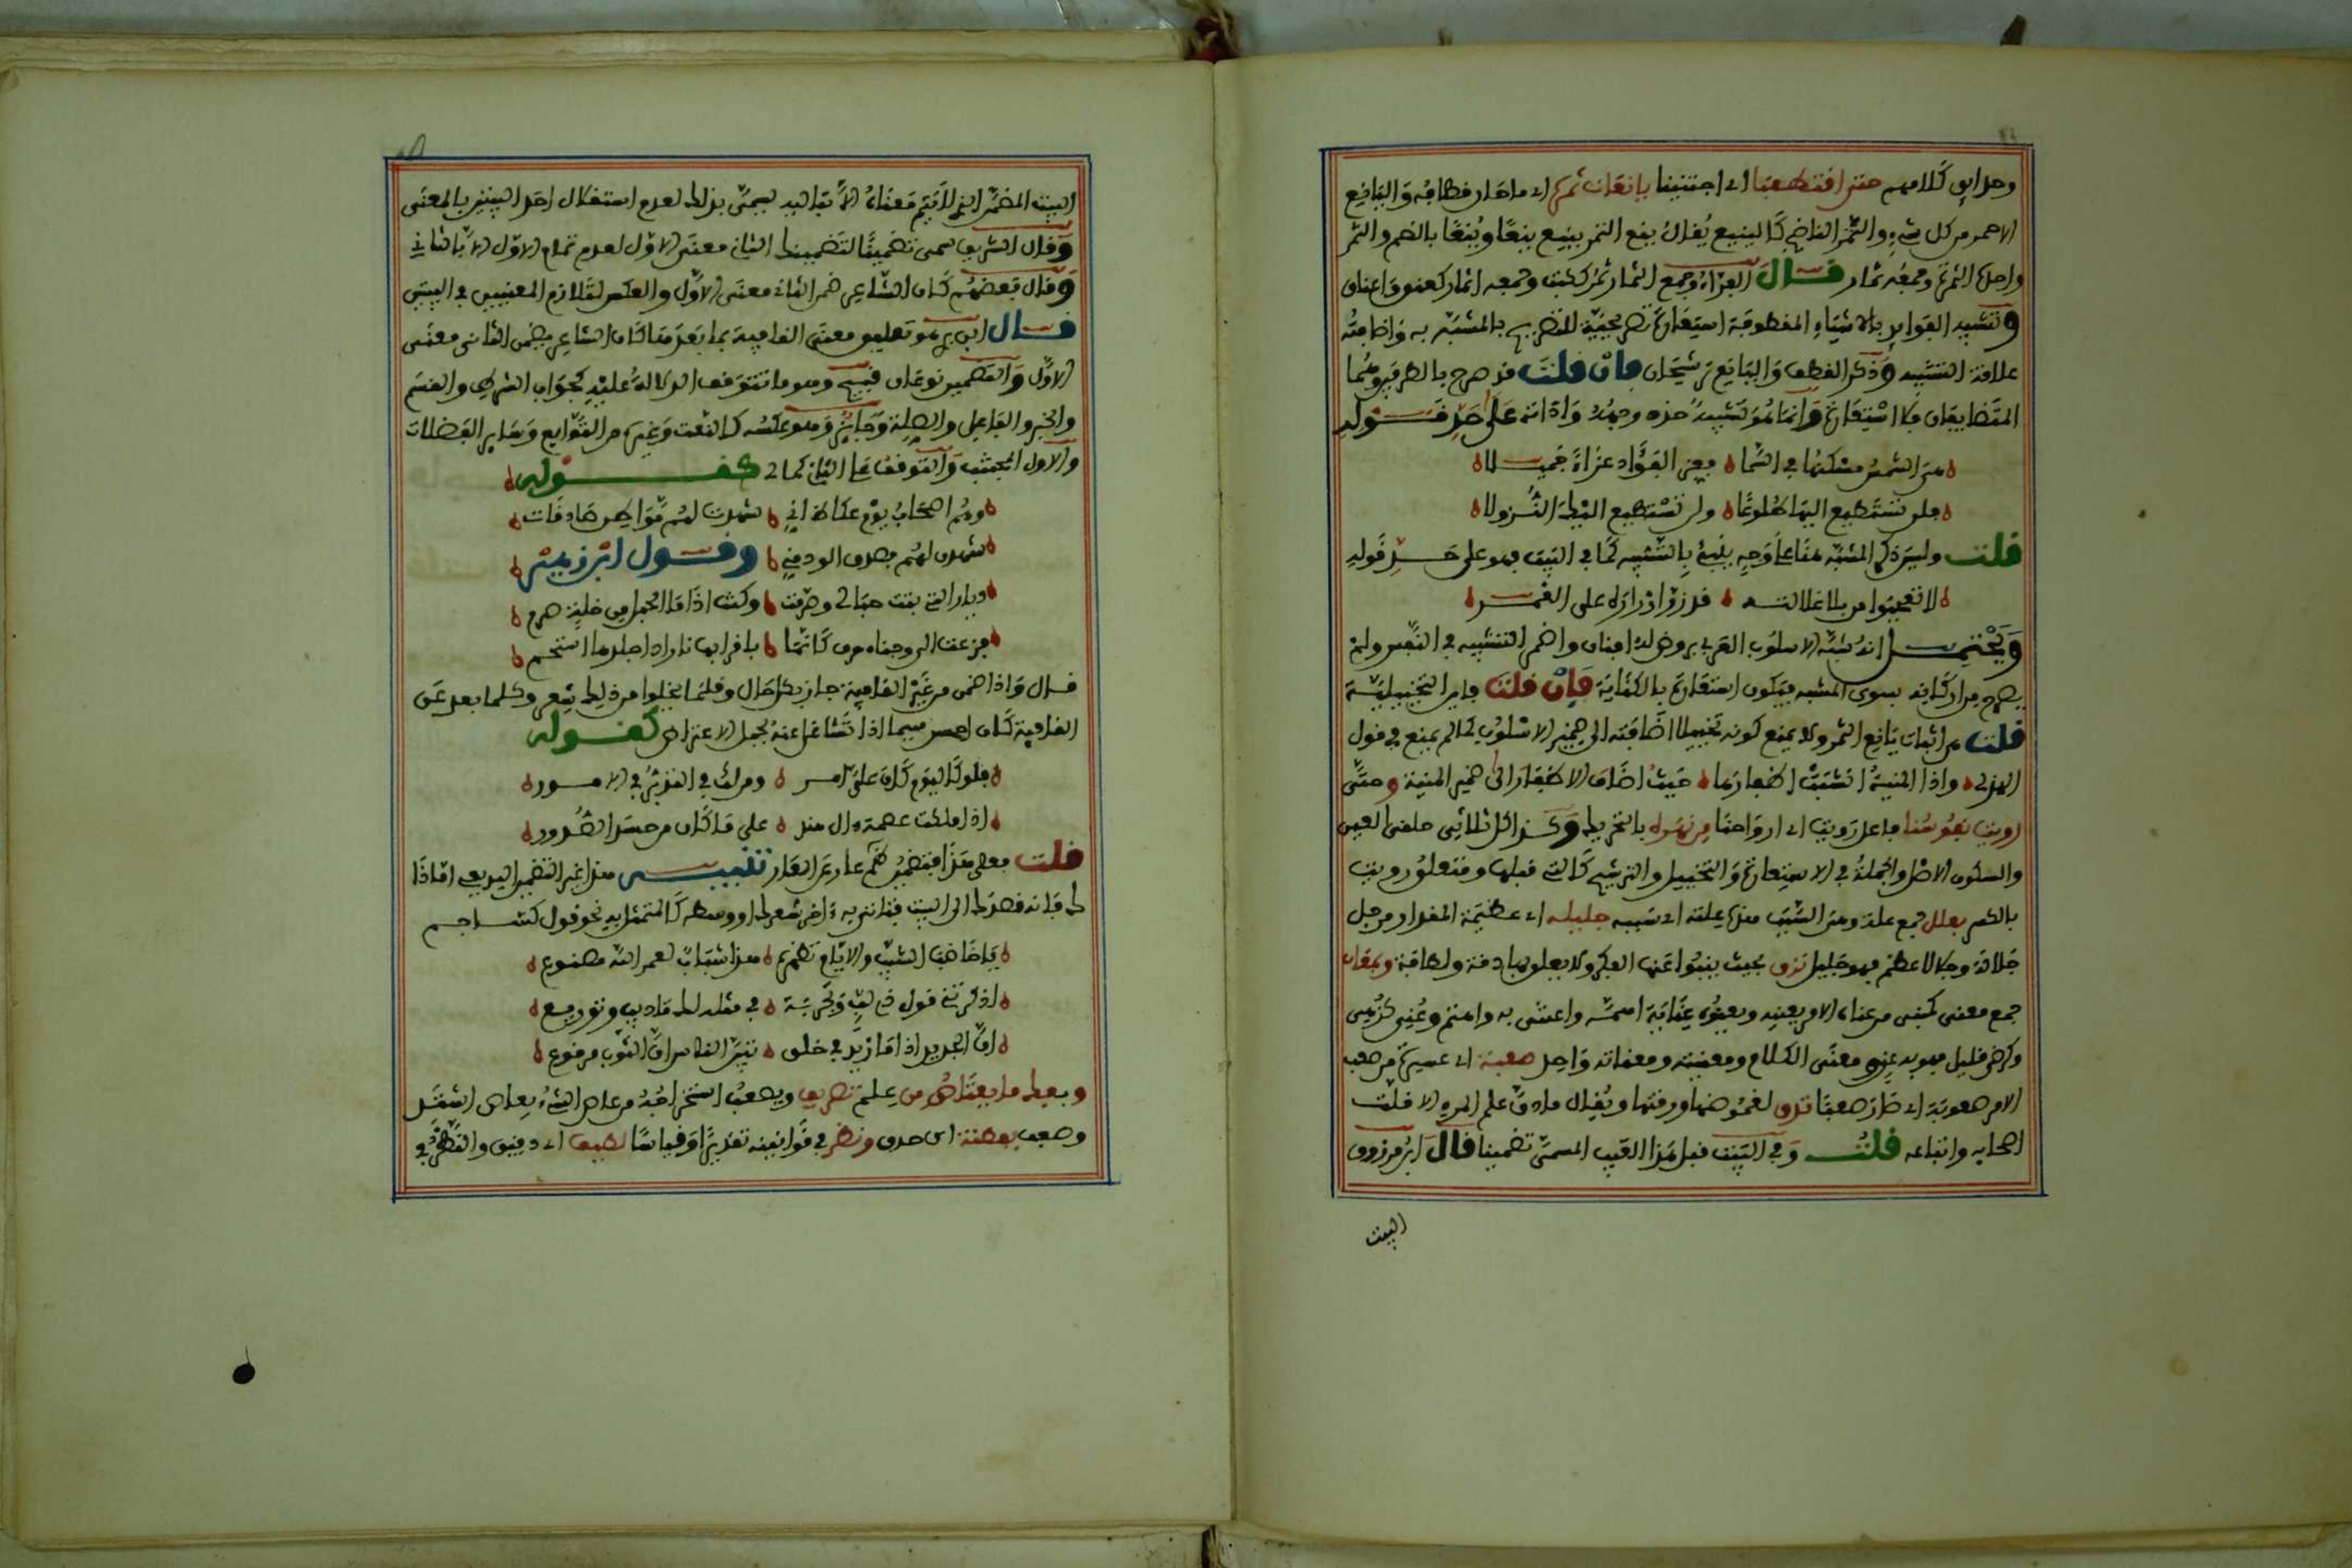 وحدايق كلامهم حتى اقتطعنا اي اجتنينا يانعات ثمرها اي ما حان قطافه واليانع
الاحمر من كل شيء والثمر الناضج كالينيع يقال ينع الثمر يينع ينعا وينعا بالضم والثمر
واحده الثمرة وجمعه ثمار قال الفراء وجمع الثمار ثمر ككتب وجمعه اثمار كعنق واعناق
وتشبيه الفوايد بالاشياء المقطوفة استعارة تصريحية للتصريح بالمشبه به واضافته
علاقة التشبيه وذكر القطف واليانع ترشيحان فان قلت قد صرح بالطرفين وهما
المتضايفان فلا استعارة وانما هو تشبيه حذف وجهه واداته على حد قوله
هي الشمس مسكنها في السما فعز الفؤاد عزاء جميلا
فلن تستطيع اليها طلوعا ولن تستطيع اليك النزولا
قلت وليس ذكر المشبه هنا على وجه ينبئ بالتشبيه كما في البيت فهو على حد قوله
لا تعجبوا من بلا غلالته قد زر ازراره على القمر
ويحتمل انه شبه الاسلوب العربي بروض له افنان واضمر التشبيه في النفس ولم
يصرح من اركانه بسوى المشبه فيكون استعارة بالكناية فان قلت فاين التخييلية
قلت هي اثبات يانع الثمر ولا يمنع كونه تخييلا اضافته الى ضمير الاسلوب كما لم يمنع في قول
الهذلي واذا المنية انشبت اظفارها حيث اضاف الاظفار الى ضمير المنية وحتى
رويت نفوسنا فاعل رويت اي ارواحنا من نهره بالتحريك وكذا كل ثلاثي حلقي العين
والسكون الاصل والجملة في الاستعارة والتخييل والترشيح كالتي قبلها ومتعلق رويت
بالكسر بعلل جمع علة وهي السبب هذه علته اي سببه جليله اي عظيمة المقدار من جل
جلالة وجلالا عظم فهو جليل تدق بحيث ينبوا عنها الفكر ولا يعلق بها دقة ولطافة وبمعان
جمع معنى كمبنى من عناه الامر يعنيه ويعنوه عناية اهمه واعتنى به واهتم وعني كرضي
وكرضى قليل فهو به عن ومعنى الكلام ومعنيته ومعناته واحد صعبة اي عسيرة من صعب
الامر صعوبة اي صار صعبا تدق لغموضها ورقتها ويقال ما دق علم المرء الا قلت
اصحابه واتباعه قلت وفي البيت قبل هذا العيب المسمى تضمينا قال ابن مرزوق
البيت
البيت المضمن الذي لا يتم معناه الا بتاليه يسمى بذلك لعدم استقلال احد البيتين بالمعنى
وقال الشريف سمي تضمينا لتضمينك الثاني معنى الاول لعدم تمام الاول الا بالثاني
وقال بعضهم كان الشاعر ضمن الثاني معنى الاول والعكس لتلازم المعنيين في البيتين
قال ابن بري هو تعليق معنى القافية بما بعدها كان الشاعر يضمن الثاني معنى
الاول والتضمين نوعان قبيح وهو ما تتوقف الدلالة عليه كجواب الشرط والقسم
والخبر والفاعل والصلة وجايز وهو عكسه كالنعت وغيره من التوابع وساير الفضلات
والاول المجتنب والتوقف على الثاني كما في كقوله
وهم اصحاب يوم عكاظ اني شهدت لهم مواطن صادقات
شهدن لهم بصدق الود مني وقول ابن زهير
وديار التي بتت حبالي وصرمت وكنت اذا ما الحبل من خلة صرم
فزعت الى وجناء حرف كانما باقرابها قار اذا جلدها استحم
قال واذا ضمن من غير القافية جاز بكل حال وقلما يخلوا من ذلك شعر وكلما بعد عن
القافية كان احسن سيما اذا تشاغل عنه بجمل الاعتراض كقوله
فلو كاليوم كان علي امر ومن لك في التدبر في الامور
اذا ملكت عصمة وال مند على ما كان من حسك الصدور
قلت فعلى هذا فتضمين الناظم عار عن العار تنبيه هذا غير التضمين البديعي اما ذا
ك فانه قصدك الى البيت فتاتي به في اخر شعرك او وسطه كالمتمثل به نحو قول كشاجم
يا خاضب الشيب والايام تظهره هذا شباب لعمر الله مصنوع
اذكرتني قول ذي لب وتجربة في مثله لك تاديب وتوديع
ان الجديد اذا ما زيد في خلق تبين الناس ان الثوب مرقوع
وبعيك ما يعتاض من علم تصريف ويصعب استخراجه من عاص الشيء يعاص اشتد
وصعب بفطنة اي حدق ونظر في قوانينه تقديرا وقياسا لطيف اي دقيق والنظر في